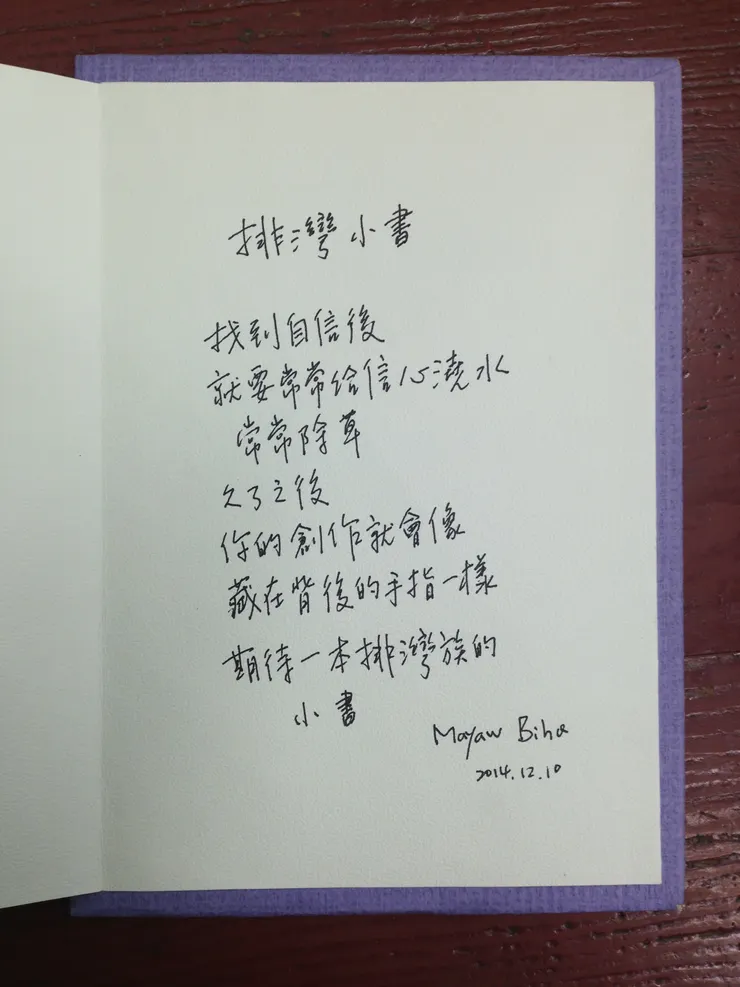 排灣小書
找到自信後
就要常常給信心澆水
常常除草
久了之後
你的創作就會像
藏在背後的手指一樣
期待一本排灣族的
小書
Mayaw Biho
2014.12.10